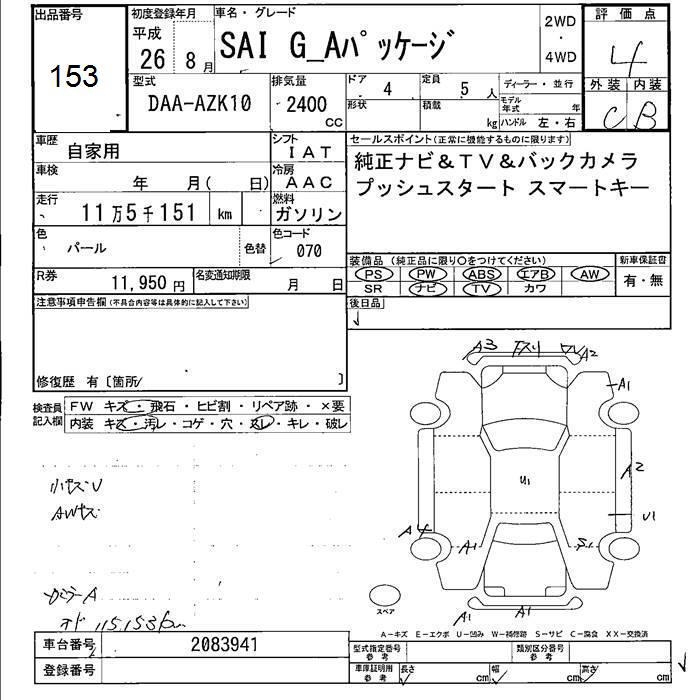 出品番号
153
初度登録年月
平成
26 8月
車名・グレード
SAI G_Aパッケージ
2WD
・
4WD
評価点
4
外装 内装
C B
型式
DAA-AZK10
排気量
2400
cc
ドア
4
定員
5人
形状
積載
kg
ディーラー・並行
モデル年式 年
ハンドル 左・右
車歴
自家用
シフト
IAT
車検
年 月( 日)
冷房
AAC
走行
11万5千151 km
燃料
ガソリン
色
パール
色替
色コード
070
R券
11,950円
名変通知期限
月 日
セールスポイント(正常に機能するものに限ります)
純正ナビ&TV&バックカメラ
プッシュスタート スマートキー
装備品(純正品に限り○をつけてください)
PS PW ABS エアB AW
SR ナビ TV カワ
新車保証書
有・無
後日品
注意事項申告欄(不具合内容等は具体的に記入して下さい)
修復歴 有〔箇所/ 〕
検査員記入欄
FW キズ・飛石・ヒビ割・リペア跡・×要
内装 キズ・汚レ・コゲ・穴・スレ・キレ・破レ
小キズU
AWキズ
ガラーA
オド 115,153km
A3 下スリ A2
A1
U1
A2
U1
A4
A1
S1
A1
A1
スペア
A-キズ E-エクボ U-凹み W-補修跡 S-サビ C-腐食 XX-交換済
車台番号
2083941
登録番号
型式指定番号
参考
類別区分番号
参考
車庫証明用
参考
長さ cm
幅 cm
高さ cm